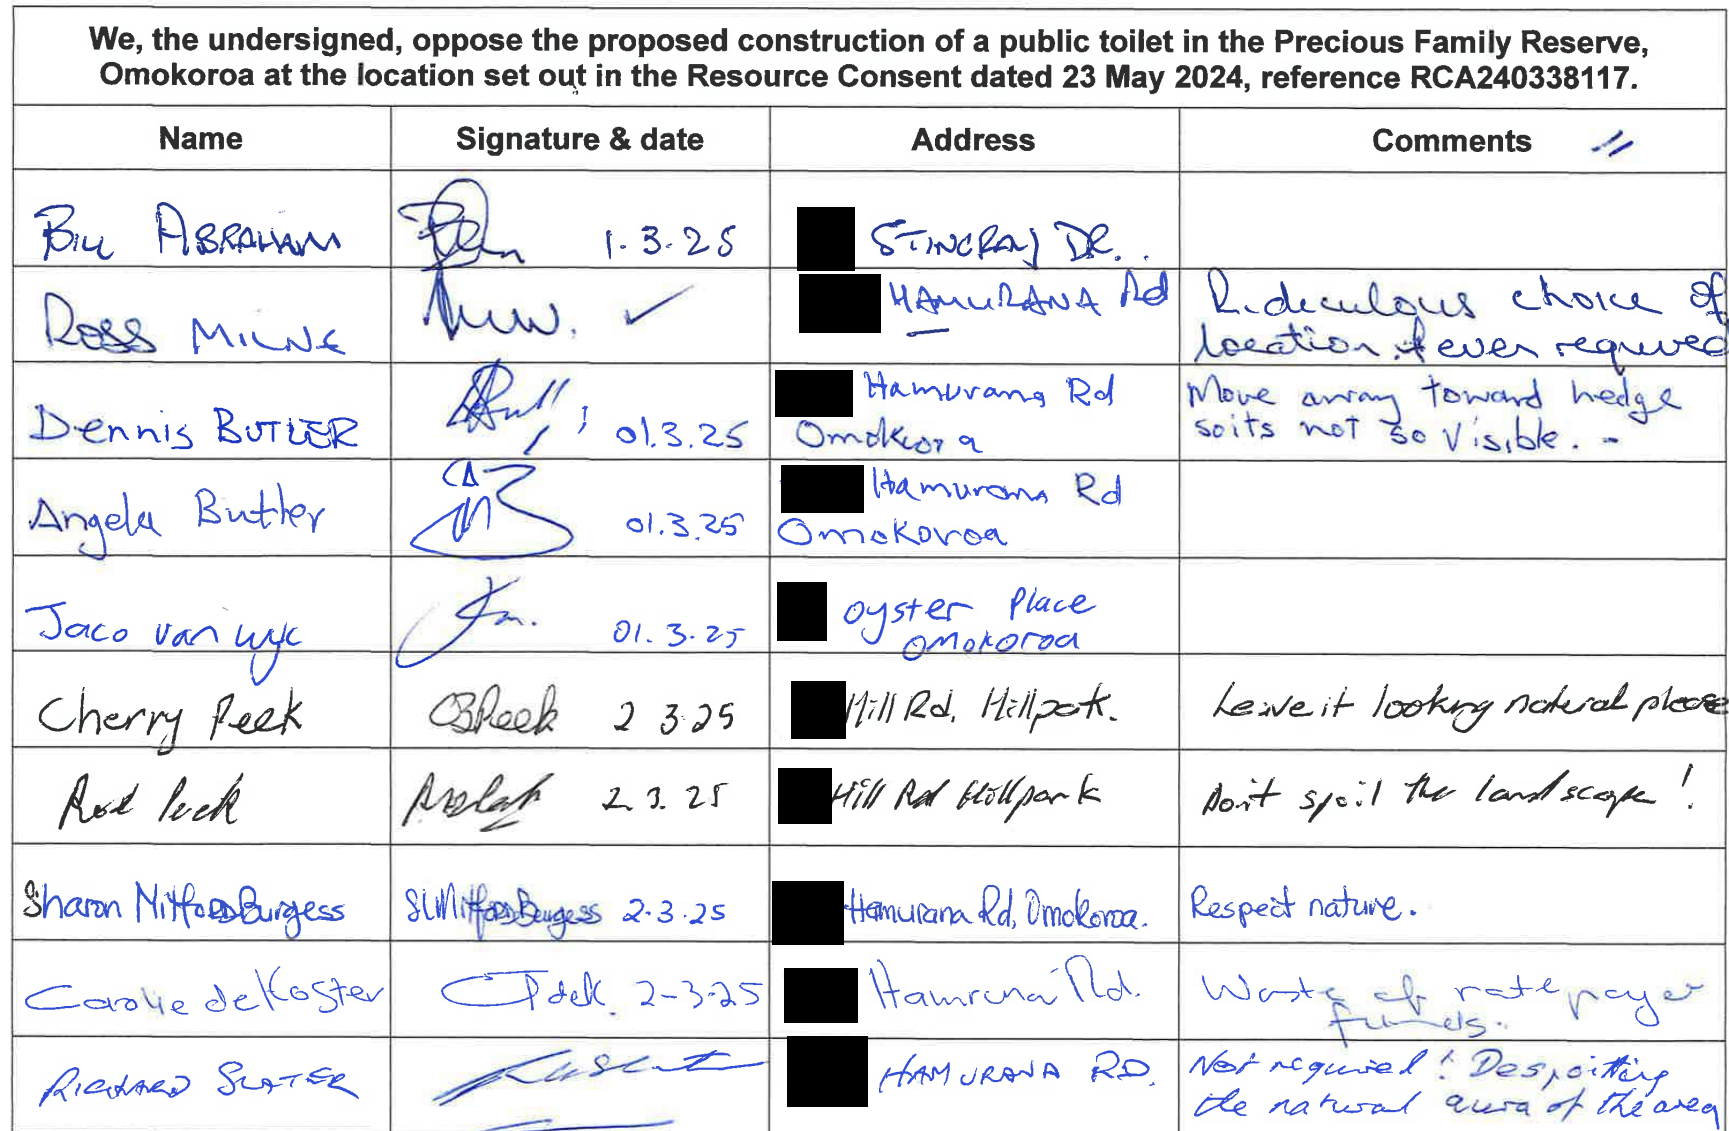 We, the undersigned, oppose the proposed construction of a public toilet in the Precious Family Reserve,
Omokoroa at the location set out in the Resource Consent dated 23 May 2024, reference RCA240338117.
Name Signature & date Address Comments
Bill ABRAHAM 1.3.25 STINGRAY DR.
ROSS MILNE HAMURANA Rd Ridiculous choice of
location if ever required
Dennis BUTLER 01.3.25 Hamurana Rd
Omokoroa Move away toward hedge
so its not so visible.
Angela Butler 01.3.25 Hamurana Rd
Omokoroa
Jaco van Wyk 01.3.25 Oyster Place
Omokoroa
Cherry Peek CBPeek 2 3.25 Hill Rd, Hillpark. Leave it looking natural please
Rod Peek 2.3.25 Hill Rd Hillpark Don't spoil the landscape!
Sharon Mitford Burgess SLMitford Burgess 2.3.25 Hamurana Rd, Omokoroa. Respect nature.
Carolie de Koster 2-3-25 Hamrana Rd. Waste of rate payer
funds.
RICHARD SLATER HAMURANA RD. Not required! Despoiting
the natural aura of the area